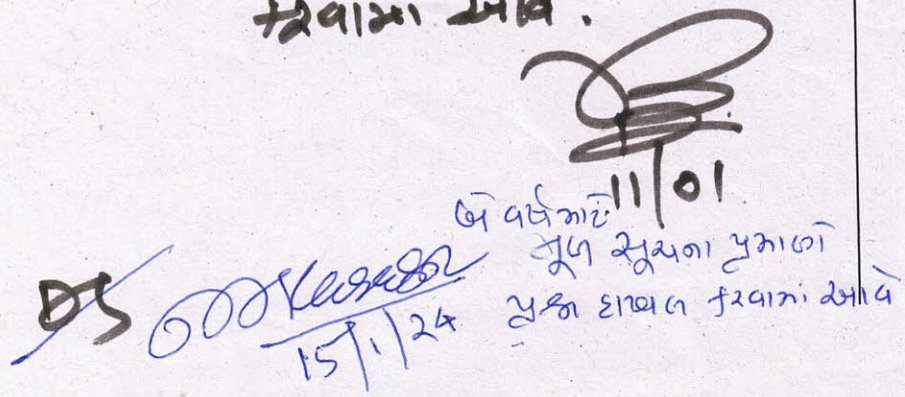 કરવામાં આવે.
11/01
બે વર્ષ માટે
મુળ સુચના પ્રમાણે
દાખલ કરવામાં આવે
DS
15/1/24